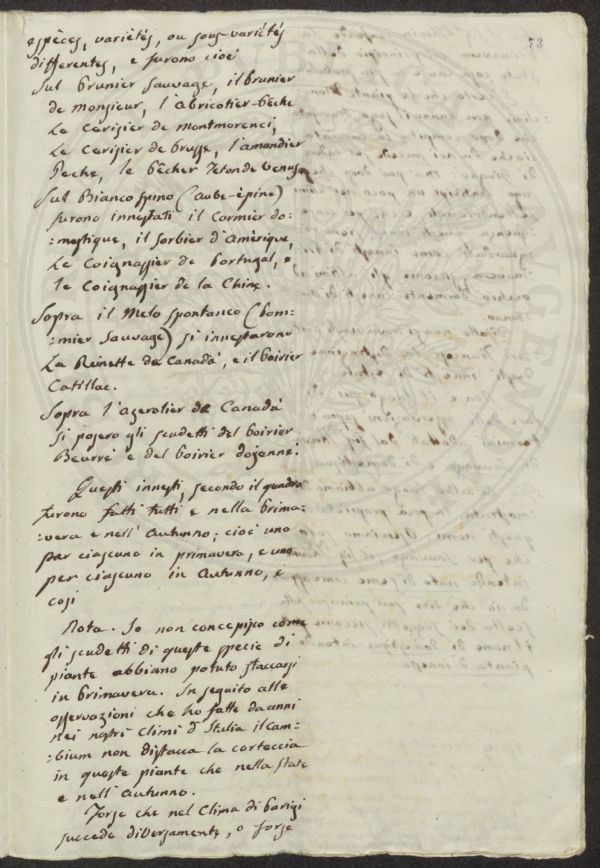 73
espèces, variétés, ou sous-variétés
differentes, e furono cioè
Sul Prunier Sauvage, il Prunier
de Monsieur, l'abricotier-Pêche
Le Cerisier de Montmorenci,
Le Cerisier de Prusse, l'amandier
Peche, le Pêcher Teton de Venus
Sul Bianco Spino (aube-èpine)
furono innestati il Cormier do=
=mestique, il Sorbier d'Amèrique,
Le Coignassier de Portugal, e
le Coignassier de la Chine.
Sopra il Melo spontaneo (Pom=
=mier Sauvage) si innestarono
La Reinette de Canadà, e il Poirier
Catillac.
Sopra l'azerolier de Canadà
Si posero gli scudetti del Poirier
Beurré e del Poirier dojanné.
Questi innesti, secondo il quadro
furono fatti tutti e nella Prima=
=vera e nell'Autunno; cioè uno
per ciascuno in primavera, e uno
per ciascuno in Autunno, e
così
Nota. Io non concepisco come
gli scudetti di queste specie di
piante abbiano potuto staccarsi
in Primavera. In seguito alle
osservazioni che ho fatte da anni
nei nostri Climi d'Italia il Cam=
=bium non distacca la corteccia
in queste piante che nella state
e nell'Autunno.
Forse che nel Clima di Parigi
succede diversamente, o forse